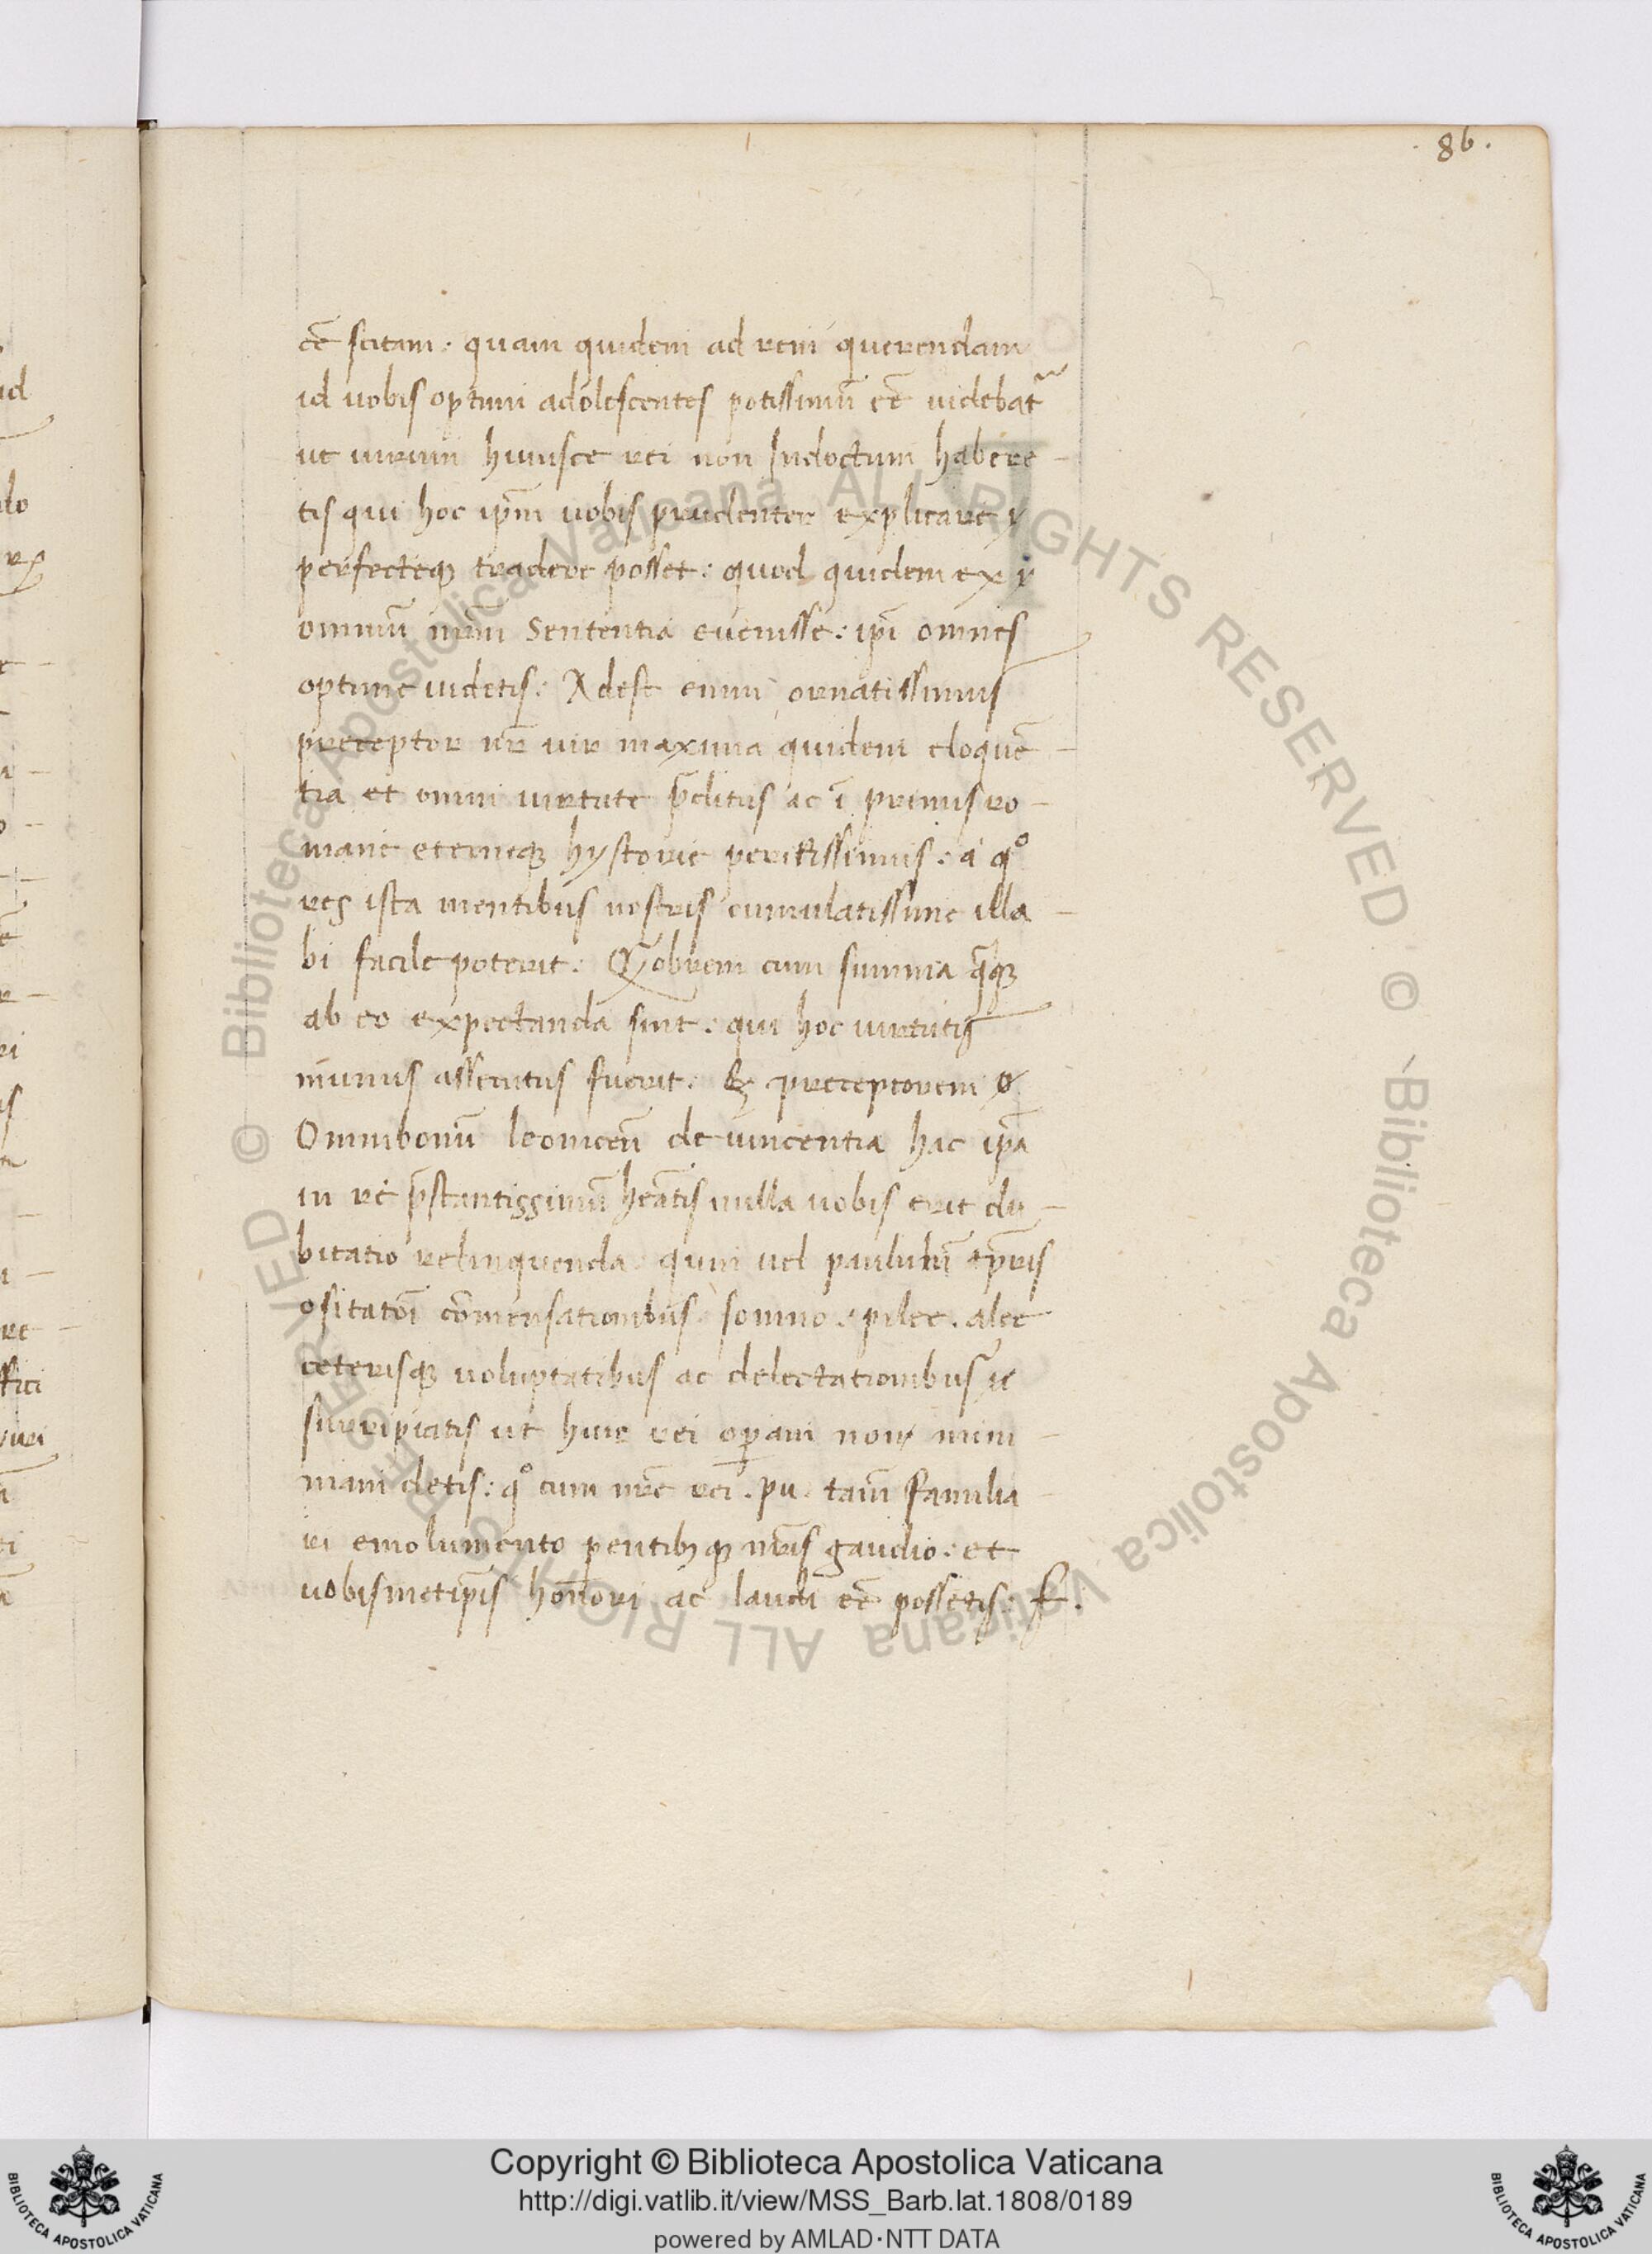 86.
cē scitam. quam quidem ad rem querendam
id uobis optimi adolescentes potissimū eē uidebat᷑
ut uirum huiusce rei non Indoctum habere-
tis qui hoc ip̄m uobis prudenter explicare
perfecteq; tradere posset: quod quidem ex
omniū nr̄m Sententia euenisse: ip̄i omnes
optime uidetis: Adest enim ornatissimus
preceptor nr̄ uir maxima quidem eloquē-
tia et omni uirtute p̄ditus ac ī primis ro-
mane eterneq; hystorie peritissimus: a qͦ
res ista mentibus nostris cumulatissime illa-
bi facile poterit: Q̄obrem cum summa
ab eo expectanda sint: qui hoc uirtutis
munus assecutus fuerit. preceptorem
Omnibonū leonicen̄ de uincentia hac ip̄a
in re p̄stantissimū heātis nulla uobis erit du-
bitatio relinquenda quin uel paululū tp̄ris
ositatōi cōmensationibus somno. pilee. alee
ceterisq; uoluptatibus ac delectationibus
surripiatis ut huic rei operam non mini-
mam detis: qͦ cum nr̄e rei. pu. tam familia-
ri emolumento pentibȝq; nr̄is gaudio: et
uobismetip̄is hon̄ori ac laudi eē possetis: f.
Copyright © Biblioteca Apostolica Vaticana
http://digi.vatlib.it/view/MSS_Barb.lat.1808/0189
powered by AMLAD·NTT DATA